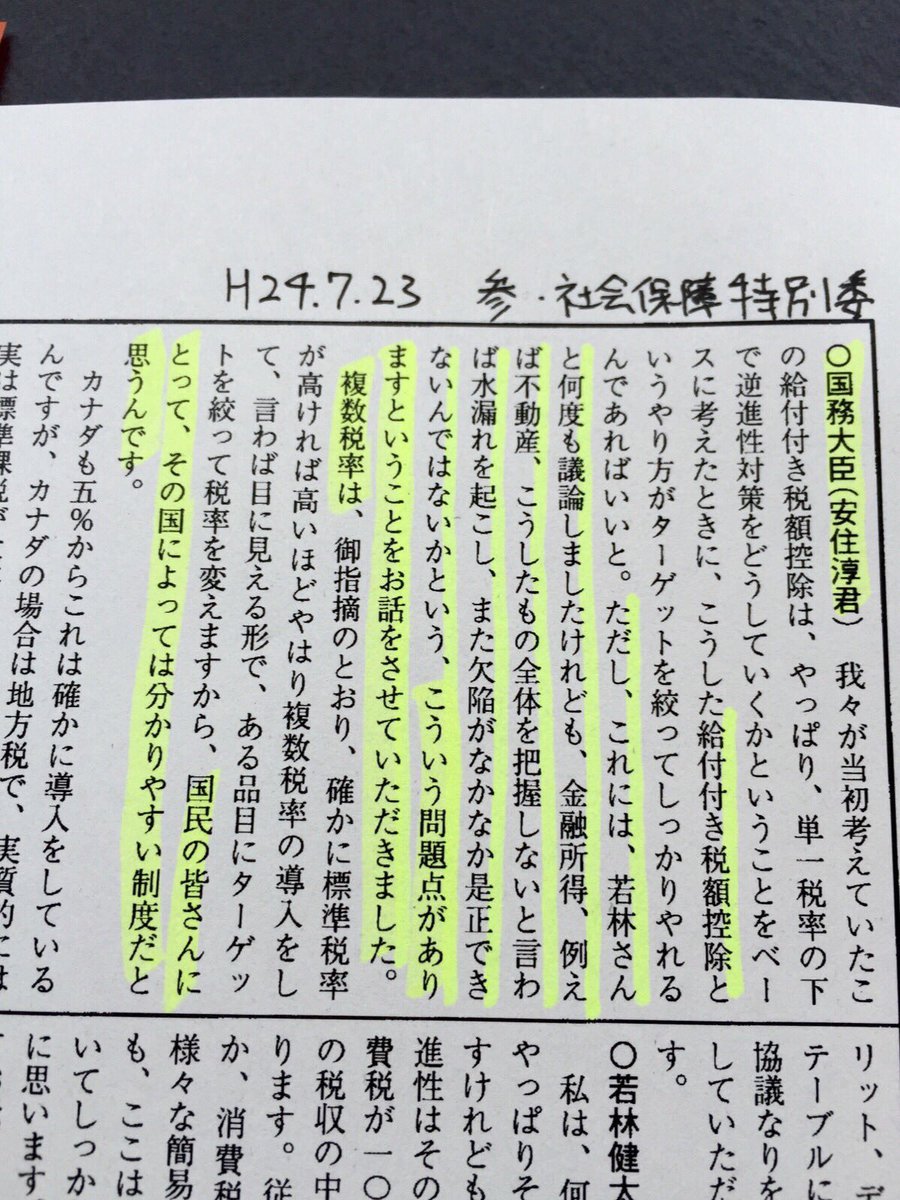 H24.7.23 参・社会保障特別委
○国務大臣(安住淳君) 我々が当初考えていたこ
の給付付き税額控除は、やっぱり、単一税率の下
で逆進性対策をどうしていくかということをベー
スに考えたときに、こうした給付付き税額控除と
いうやり方がターゲットを絞ってしっかりやれる
んであればいいと。ただし、これには、若林さん
と何度も議論しましたけれども、金融所得、例え
ば不動産、こうしたもの全体を把握しないと言わ
ば水漏れを起こし、また欠陥がなかなか是正でき
ないんではないかという、こういう問題点があり
ますということをお話をさせていただきました。
複数税率は、御指摘のとおり、確かに標準税率
が高ければ高いほどやはり複数税率の導入をし
て、言わば目に見える形で、ある品目にターゲッ
トを絞って税率を変えますから、国民の皆さんに
とって、その国によっては分かりやすい制度だと
思うんです。
カナダも五%からこれは確かに導入をしている
んですが、カナダの場合は地方税で、実質的には
実は標準課税が
リット、デ
テーブルに
協議なりを
していただ
す。
○若林健太
私は、何
やっぱりそ
すけれども
進性はその
費税が一〇
の税収の中
ります。従
か、消費税
様々な簡易
も、ここは
いてしっか
に思います。